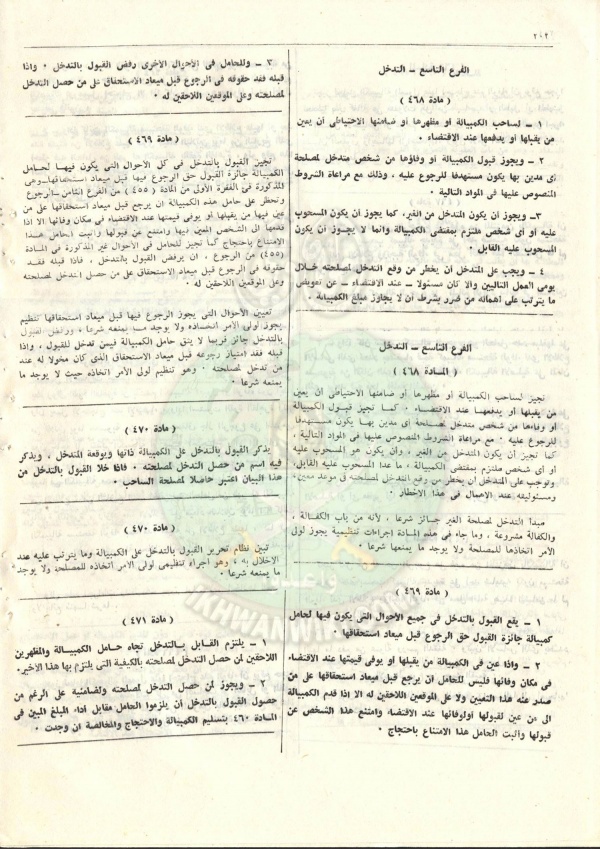 ٢٠٢
الفرع التاسع ــ التدخل
( مادة ٤٦٨ )
١ ــ لساحب الكمبيالة أو مظهرها أو ضامنها الاحتياطى أن يعين
من يقبلها أو يدفعها عند الاقتضاء .
٢ ــ ويجوز قبول الكمبيالة أو وفاؤها من شخص متدخل لمصلحة
أى مدين بها يكون مستهدفا للرجوع عليه ، وذلك مع مراعاة الشروط
المنصوص عليها فى المواد التالية .
٣ــ ويجوز أن يكون المتدخل من الغير، كما يجوز أن يكون المسحوب
عليه أو أى شخص ملتزم بمقتضى الكمبيالة وانما لا يجوز أن يكون
المسحوب عليه القابل .
٤ ــ ويجب على المتدخل أن يخطر من وقع التدخل لمصلحته خلال
يومى العمل التاليين والا كان مسئولا ــ عند الاقتضاء ــ عن تعويض
ما يترتب على اهماله من ضرر بشرط أن لا يجاوز مبلغ الكمبيالة .
الفرع التاسع ــ التدخل
( المادة ٤٦٨ )
نجيز لساحب الكمبيالة أو مظهرها أو ضامنها الاحتياطى أن يعين
من يقبلها أو يدفعها عند الاقتضاء . كما نجيز قبول الكمبيالة
أو وفاءها من شخص متدخل لمصلحة أى مدين بها يكون مستهدفا
للرجوع عليه . مع مراعاة الشروط المنصوص عليها فى المواد التالية ،
كما نجيز أن يكون المتدخل من الغير ، وأن يكون هو المسحوب عليه
أو أى شخص ملتزم بمقتضى الكمبيالة ، ما عدا المسحوب عليه القابل.
وتوجب على المتدخل أن يخطر من وقع التدخل لمصلحته فى موعد معين.
ومسئوليته عند الاهمال فى هذا الاخطار .
مبدأ التدخل لمصلحة الغير جائز شرعا ، لأنه من باب الكفالة ،
والكفالة مشروعة ، وما جاء فى هذه المادة اجراءات تنظيمية يجوز لولى
الأمر اتخاذها للمصلحة ولا يوجد ما يمنعها شرعا .
( مادة ٤٦٩ )
١ ــ يقع القبول بالتدخل فى جميع الأحوال التى يكون فيها لحامل
كمبيالة جائزة القبول حق الرجوع قبل ميعاد استحقاقها .
٢ ــ واذا عين فى الكمبيالة من يقبلها أو يوفى قيمتها عند الاقتضاء
فى مكان وفائها فليس للحامل أن يرجع قبل ميعاد استحقاقها على من
صدر عنه هذا التعيين ولا على الموقعين اللاحقين له الا اذا قدم الكمبيالة
الى من عين لقبولها أولوفائها عند الاقتضاء وامتنع هذا الشخص عن
قبولها وأثبت الحامل هذا الامتناع باحتجاج .
٣ ــ وللحامل فى الأحوال الأخرى رفض القبول بالتدخل . واذا
قبله فقد حقوقه فى الرجوع قبل ميعاد الاستحقاق على من حصل التدخل
لمصلحته وعلى الموقعين اللاحقين له .
( مادة ٤٦٩ )
نجيز القبول بالتدخل فى كل الأحوال التى يكون فيها لحامل
الكمبيالة جائزة القبول حق الرجوع فيها قبل ميعاد استحقاقها ــ وهى
المذكورة فى الفقرة الأولى من المادة ( ٤٥٥ ) من الفرع الثامن ــ الرجوع
وتحظر على حامل هذه الكمبيالة أن يرجع قبل ميعاد استحقاقها على من
عين فيها من يقبلها أو يوفى قيمتها عند الاقتضاء فى مكان وفائها الا اذا
قدمها الى الشخص المعين فيها وامتنع عن قبولها وأثبت الحامل هذا
الامتناع باحتجاج كما نجيز للحامل فى الأحوال غير المذكورة فى المادة
(٤٥٥) من الرجوع ، ان يرفض القبول بالتدخل ، فاذا قبله فقد
حقوقه فى الرجوع قبل ميعاد الاستحقاق على من حصل التدخل لمصلحته
وعلى الموقعين اللاحقين له .
تعيين الأحوال التى يجوز الرجوع فيها قبل ميعاد استحقاقها تنظيم
يجوز لولى الأمر اتخاذه ولا يوجد ما يمنعه شرعا ، ورفض القبول
بالتدخل جائز فربما لا يثق حامل الكمبيالة فيمن تدخل للقبول ، واذا
قبله فقد امتياز رجوعه قبل ميعاد الاستحقاق الذى كان مخولا له عند
من تدخل لمصلحته . وهو تنظيم لولى الأمر اتخاذه حيث لا يوجد ما
يمنعه شرعا .
( مادة ٤٧٠ )
يذكر القبول بالتدخل على الكمبيالة ذاتها ويوقعه المتدخل ، ويذكر
فيه اسم من حصل التدخل لمصلحته . فاذا خلا القبول بالتدخل من
هذا البيان اعتبر حاصلا لمصلحة الساحب .
( مادة ٤٧٠ )
تبين نظام تحرير القبول بالتدخل على الكمبيالة وما يترتب عليه عند
الاخلال به ، وهو اجراء تنظيمى لولى الأمر اتخاذه للمصلحة ولا يوجد
ما يمنعه شرعا .
( مادة ٤٧١ )
١ ــ يلتزم القابل بالتدخل تجاه حامل الكمبيالة والمظهرين
اللاحقين لمن حصل التدخل لمصلحته بالكيفية التى يلتزم بها هذا الأخير.
٢ ــ ويجوز لمن حصل التدخل لمصلحته ولضامنيه على الرغم من
حصول القبول بالتدخل أن يلزموا الحامل مقابل أداء المبلغ المبين فى
المادة ٤٦٠ بتسليم الكمبيالة والاحتجاج والمخالصة ان وجدت .
IKHWANWIKI.COM